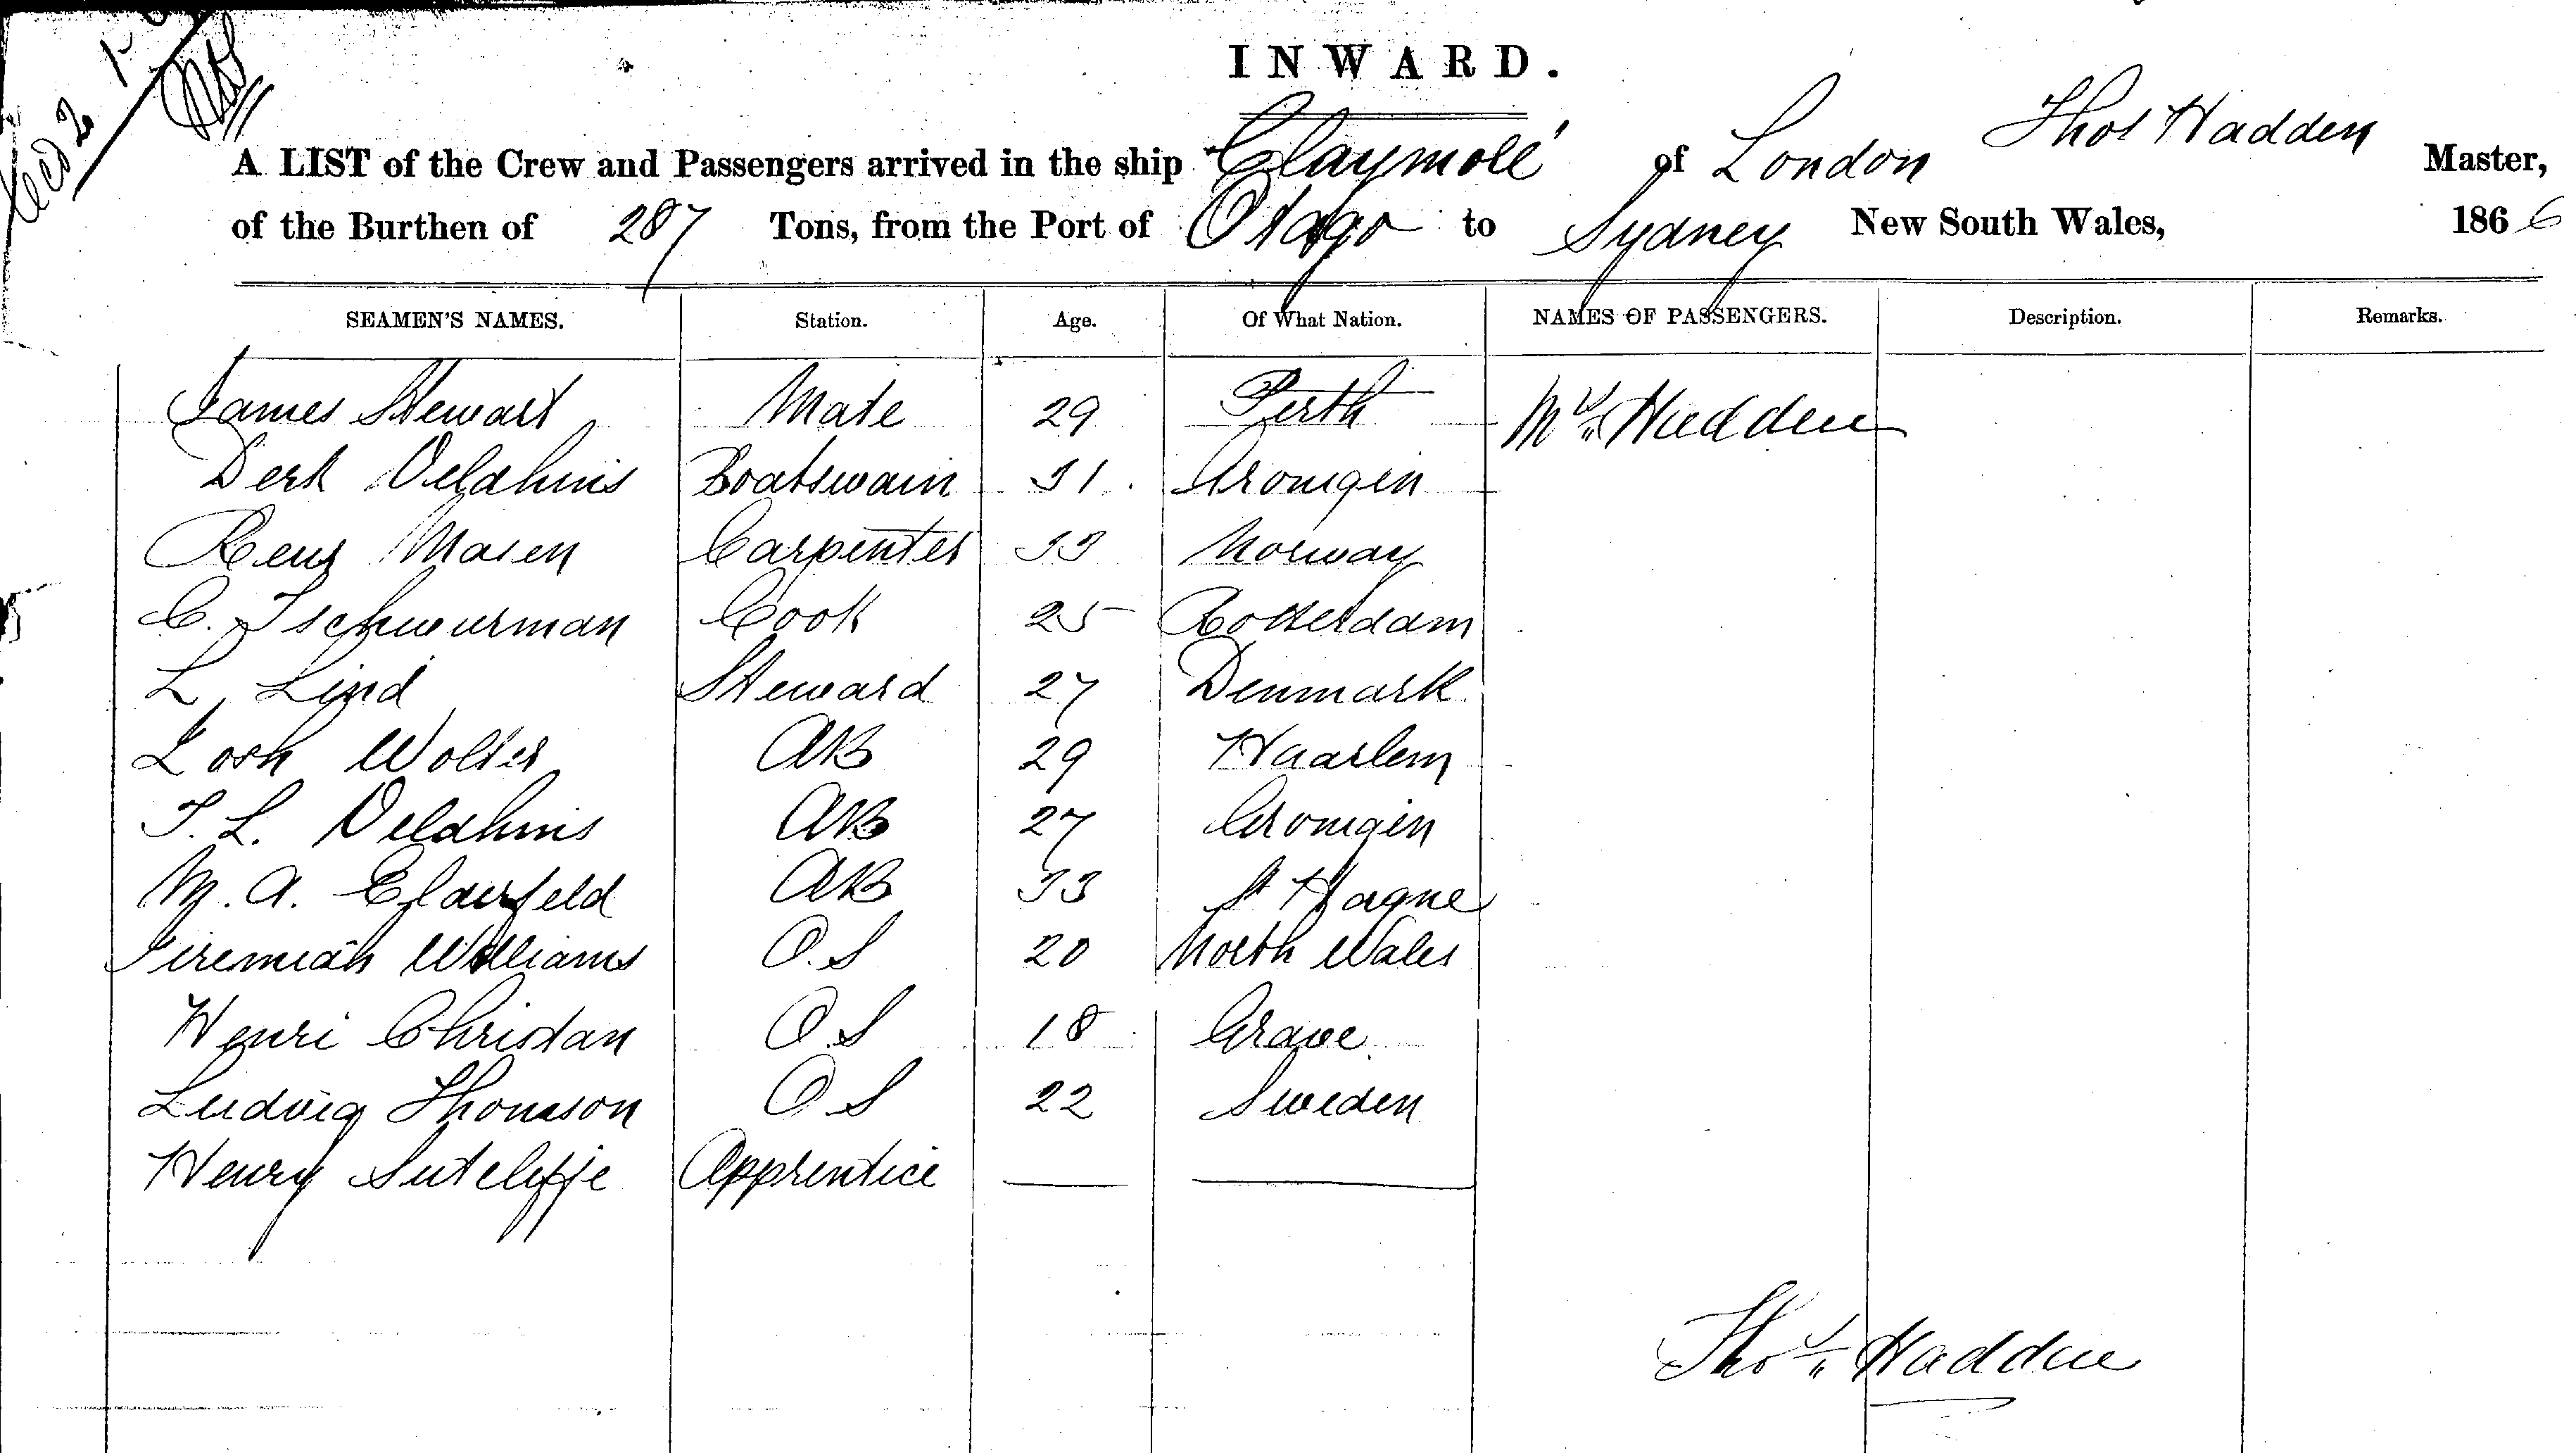 INWARD.
A LIST of the Crew and Passengers arrived in the ship "Claymore" of London Thos Hadden Master,
of the Burthen of 287 Tons, from the Port of Otago to Sydney New South Wales, 1866
SEAMEN'S NAMES. Station. Age. Of What Nation. NAMES OF PASSENGERS. Description. Remarks.
James Stewart Mate 29 Perth Mrs Hadden
Derk Veldhuis Boatswain 31 Gronigen
Reus Masen Carpenter 33 Norway
C. Tschuurman Cook 25 Rotterdam
L. Lind Steward 27 Denmark
Wolter AB 29 Haarlem
T. L. Veldhuis AB 27 Gronigen
M. A. Elderfeld AB 33 St Hague
Jeremiah Williams O.S 20 North Wales
Henri Christan O.S 18 Grave
Ludvig Thomson O S 22 Sweden
Henry Sutcliffe Apprentice
Thos Hadden